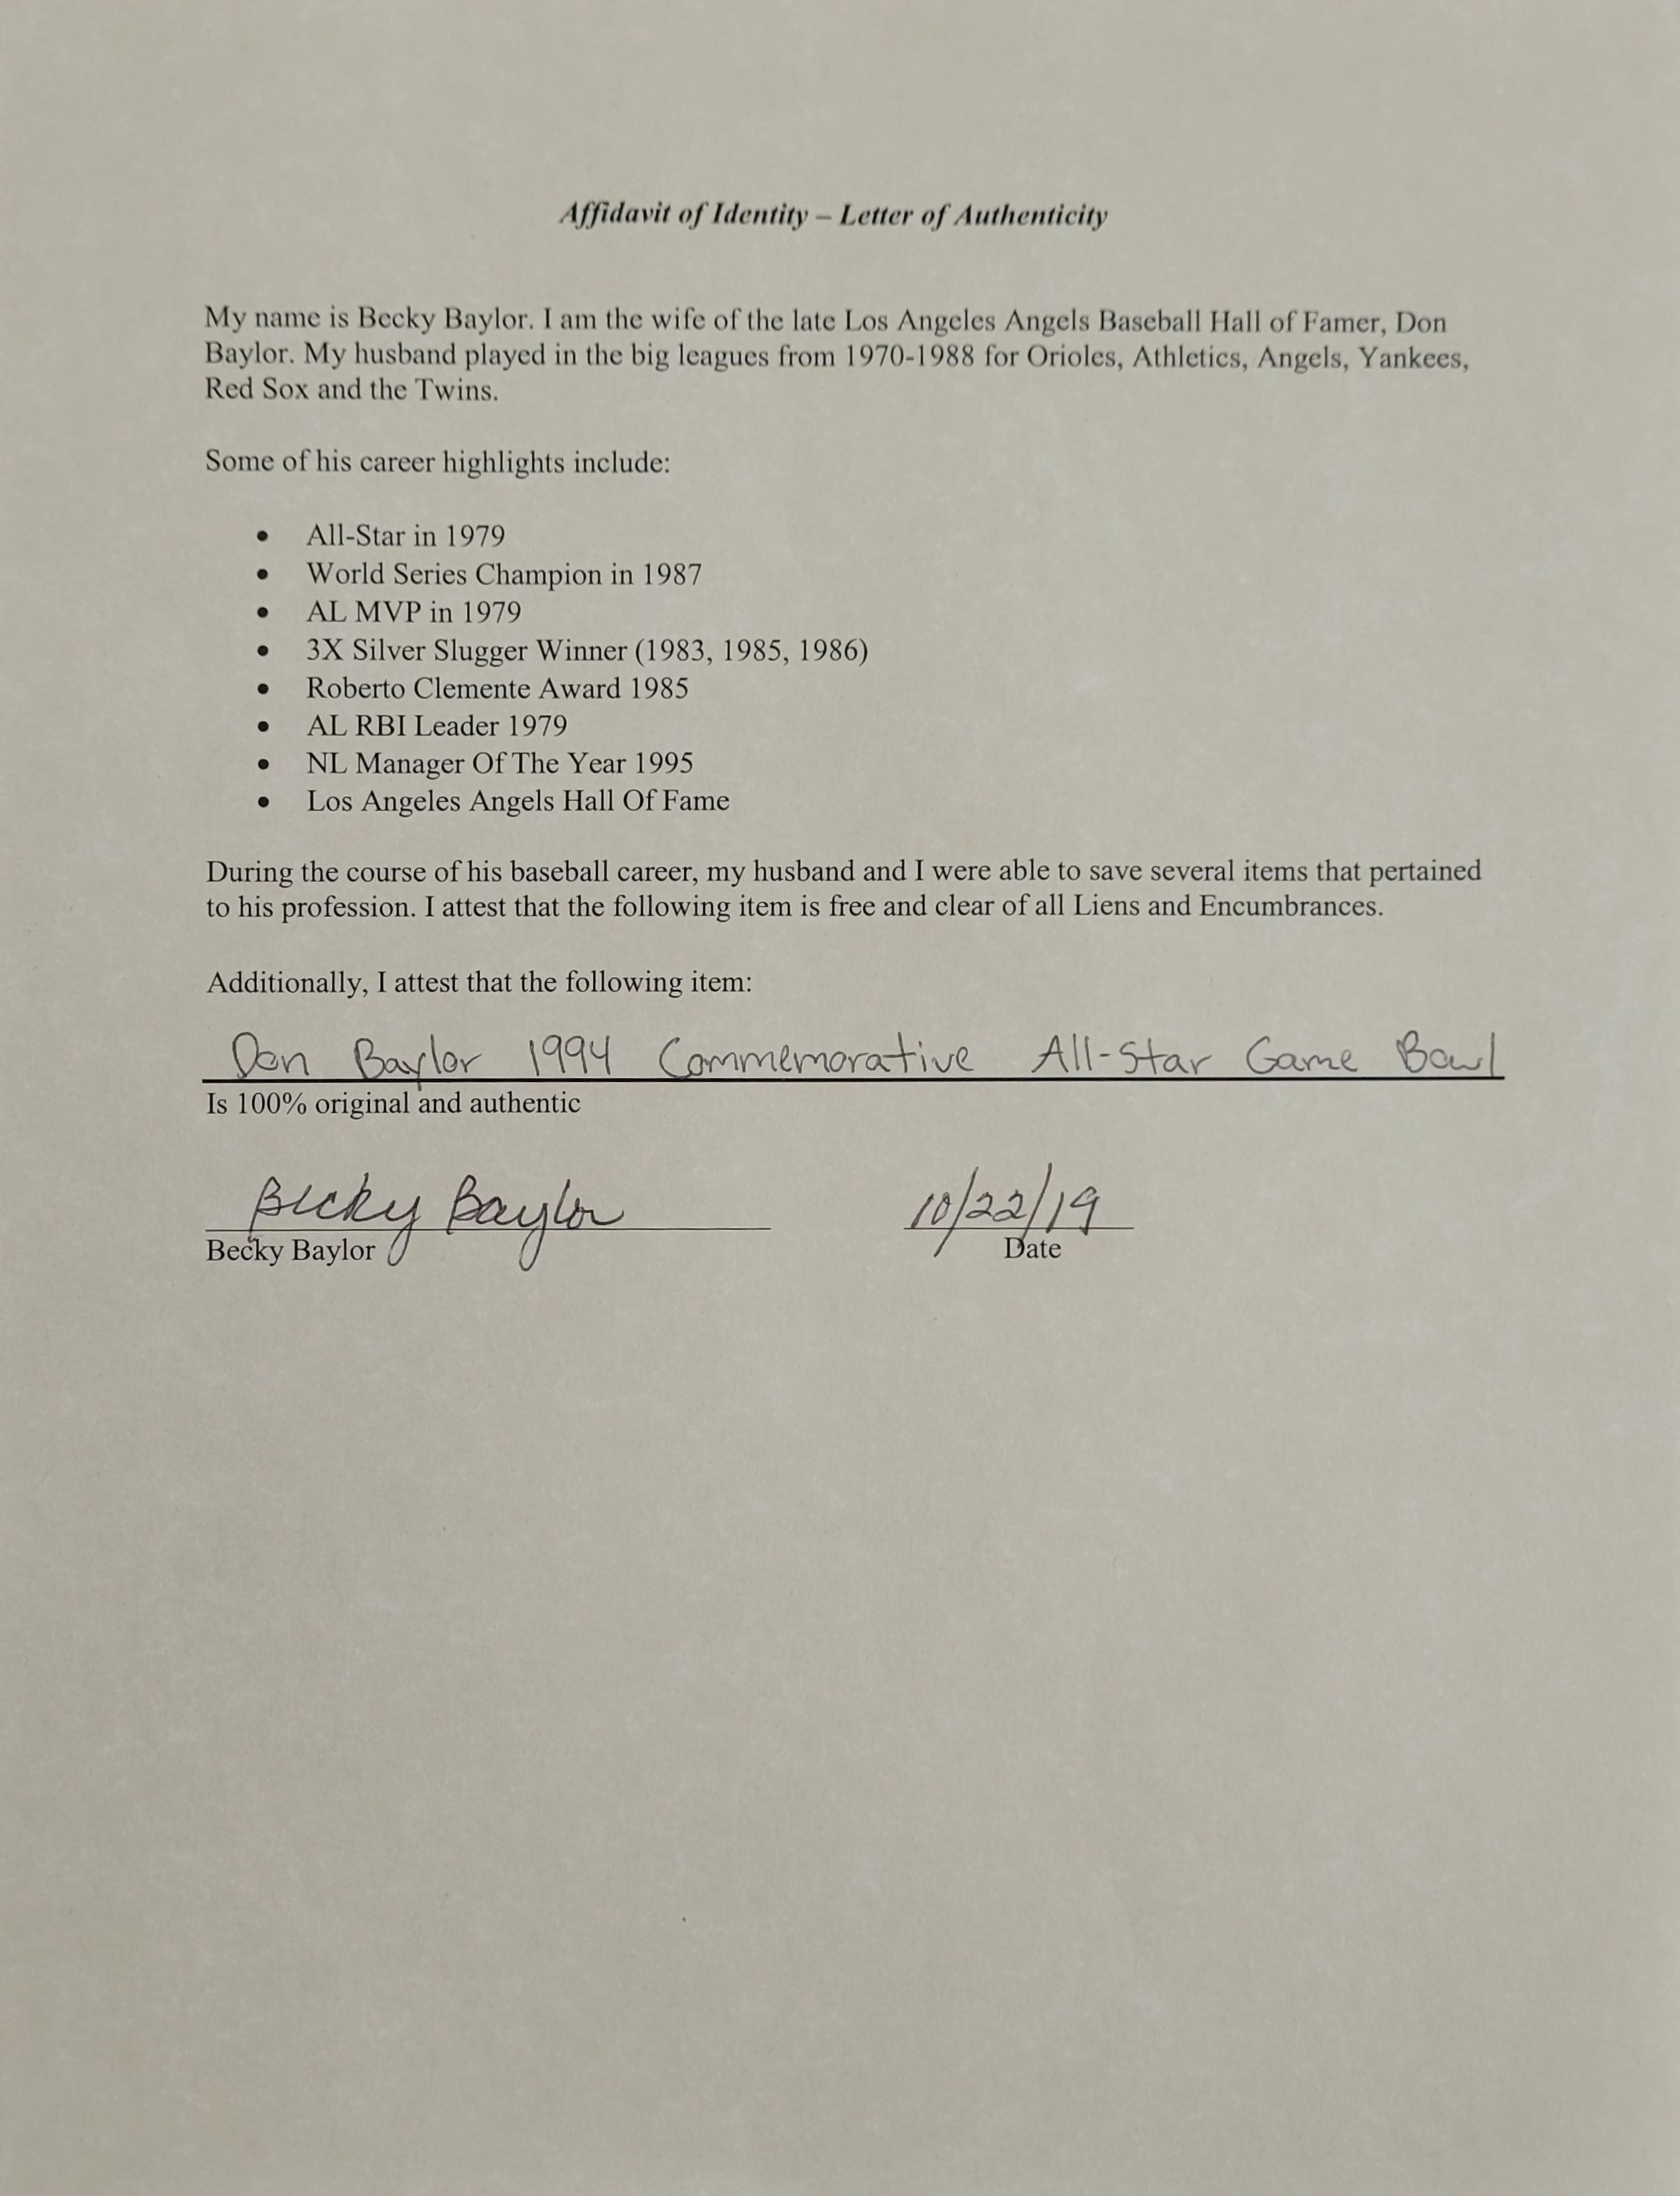 Affidavit of Identity – Letter of Authenticity
My name is Becky Baylor. I am the wife of the late Los Angeles Angels Baseball Hall of Famer, Don
Baylor. My husband played in the big leagues from 1970-1988 for Orioles, Athletics, Angels, Yankees,
Red Sox and the Twins.
Some of his career highlights include:
• All-Star in 1979
• World Series Champion in 1987
• AL MVP in 1979
• 3X Silver Slugger Winner (1983, 1985, 1986)
• Roberto Clemente Award 1985
• AL RBI Leader 1979
• NL Manager Of The Year 1995
• Los Angeles Angels Hall Of Fame
During the course of his baseball career, my husband and I were able to save several items that pertained
to his profession. I attest that the following item is free and clear of all Liens and Encumbrances.
Additionally, I attest that the following item:
Don Baylor 1994 Commemorative All-Star Game Bowl
Is 100% original and authentic
Becky Baylor 10/22/19
Becky Baylor Date